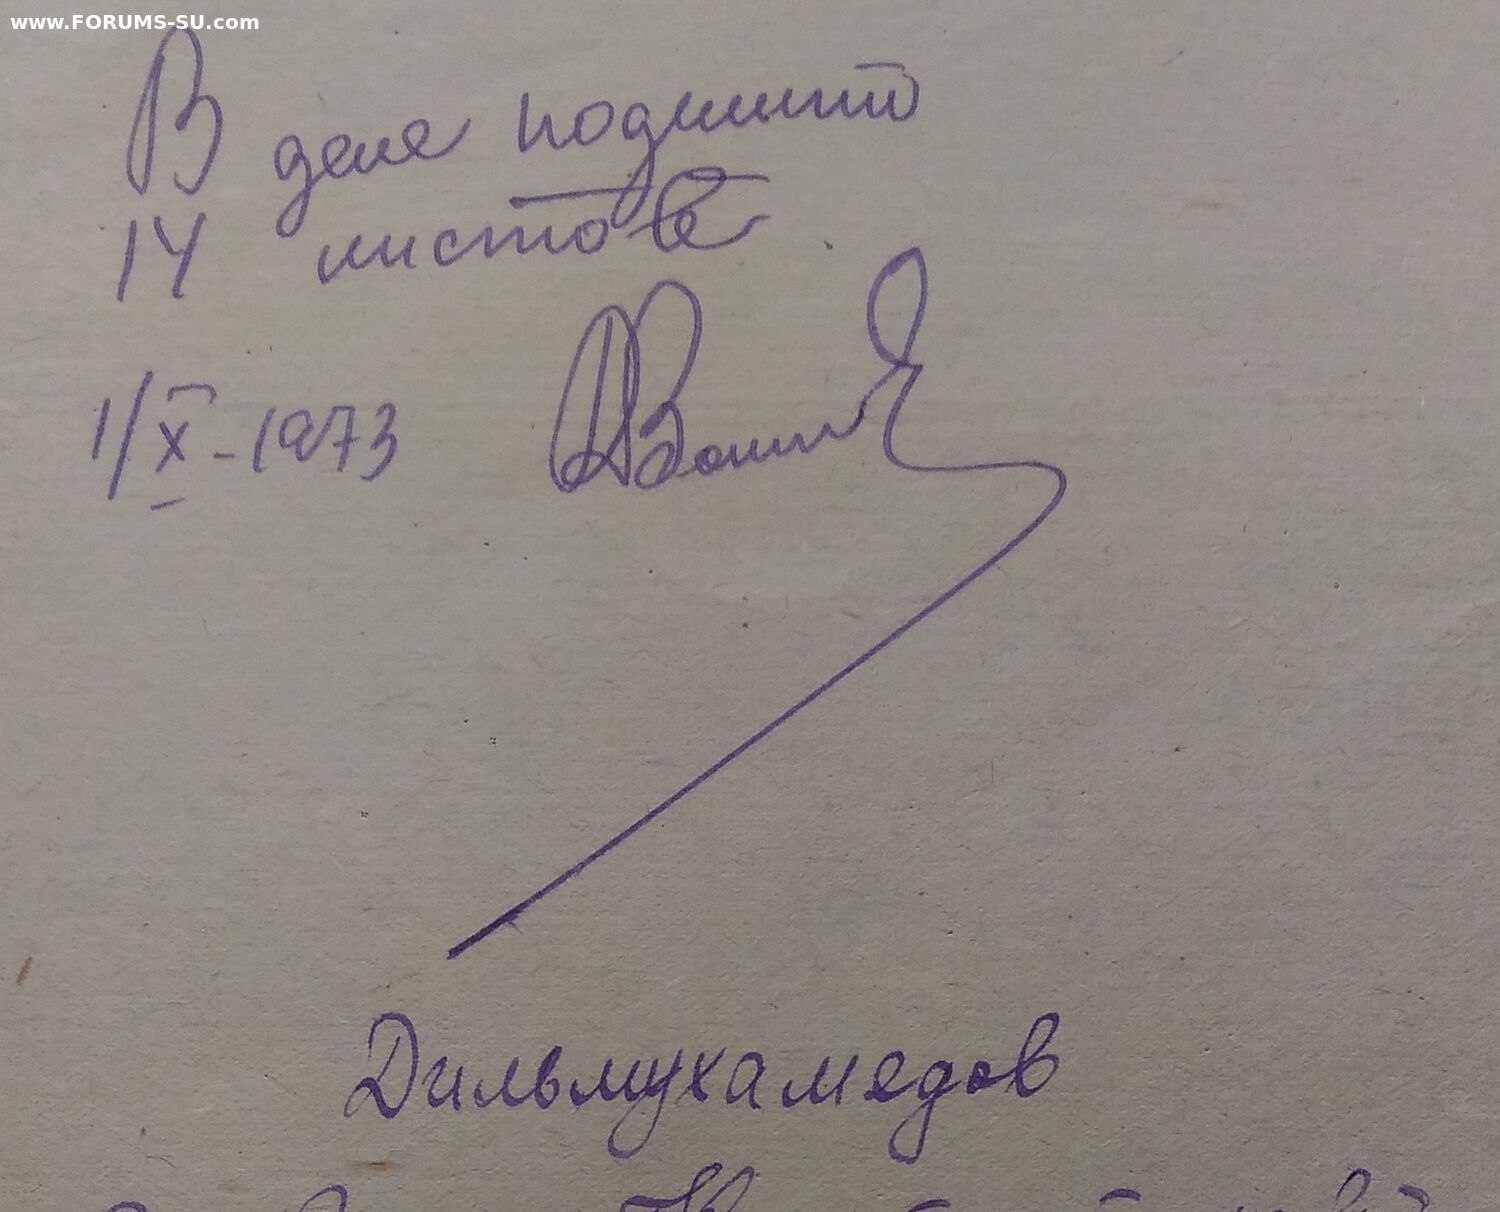 www.FORUMS-SU.com
В деле подшито
14 листов
1/X-1973
Дильмухамедов